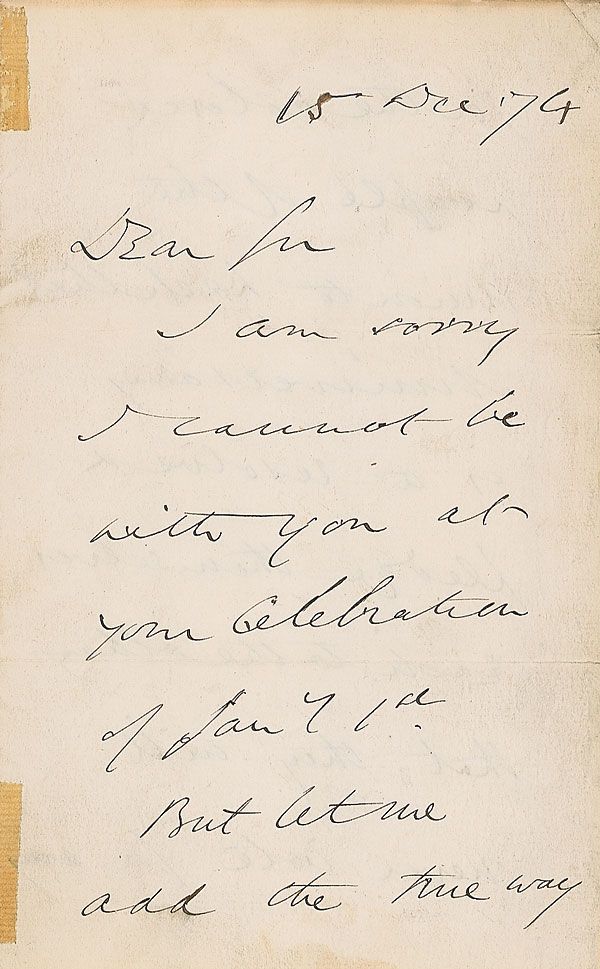 15 Dec '74
Dear Sir
I am sorry
I cannot be
with you at
your Celebration
of Jany 1st
But let me
add the true way